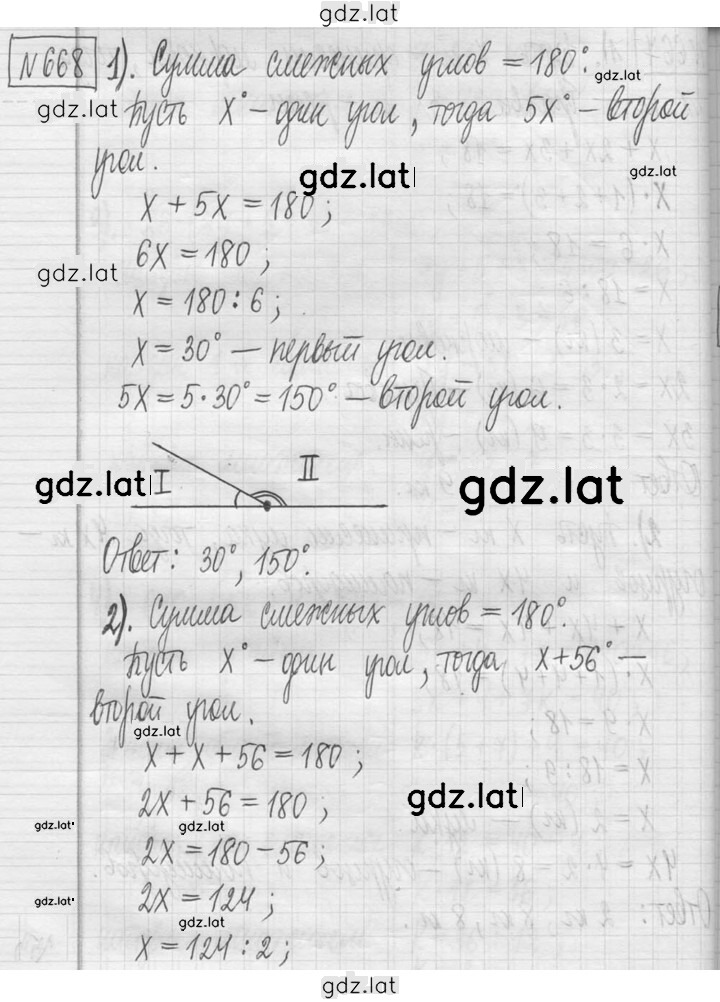 gdz.lat
№668 1). Сумма смежных углов = 180°.
gdz.lat
gdz.lat Пусть x° – один угол, тогда 5x° – второй
угол. gdz.lat gdz.lat
x + 5x = 180;
6x = 180;
gdz.lat
x = 180 : 6;
x = 30° – первый угол.
5x = 5·30° = 150° – второй угол.
gdz.lat I II gdz.lat
Ответ: 30°, 150°.
2). Сумма смежных углов = 180°.
Пусть x° – один угол, тогда x+56° –
второй угол.
gdz.lat
x + x + 56 = 180;
2x + 56 = 180; gdz.lat
gdz.lat gdz.lat
2x = 180 – 56;
gdz.lat 2x = 124;
gdz.lat
x = 124 : 2;
gdz.lat